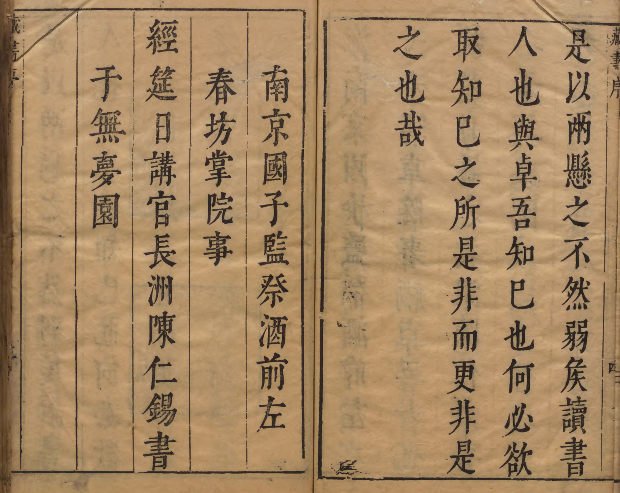 是以兩懸之不然弱矦讀書
人也與卓吾知巳也何必欲
取知巳之所是非而更非是
之也哉
南京國子監祭酒前左
春坊掌院事
經筵日講官長洲陳仁錫書
于無夢園